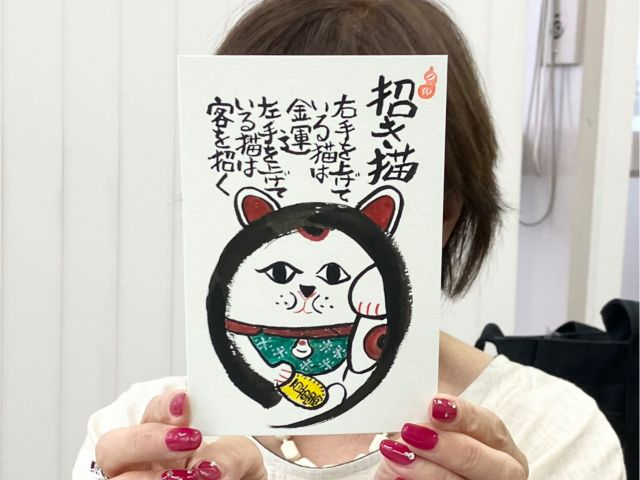 招き猫
右手を上げて
いる猫は
金運
左手を上げて
いる猫は
客を招く